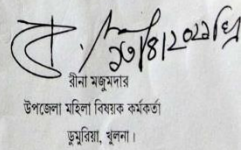 ১৩/৪/২০২২ খ্রিঃ
রীনা মজুমদার
উপজেলা মহিলা বিষয়ক কর্মকর্তা
ডুমুরিয়া, খুলনা।